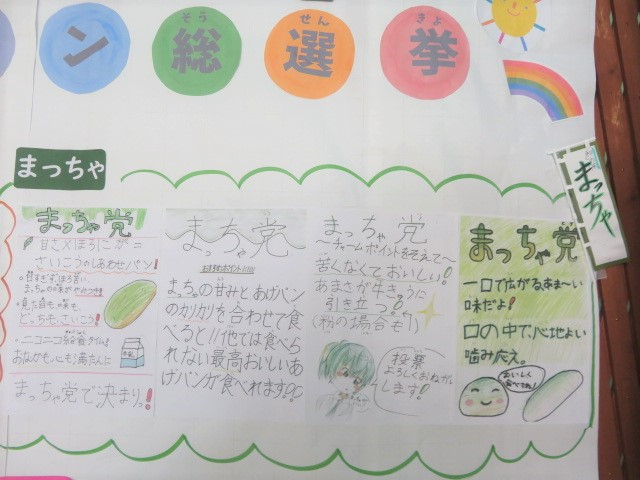 ン総選挙
そう せん きょ
まっちゃ
まっちゃ
まっちゃ党
甘さ×ほろにが=
さいこうのしあわせパン!
まっちゃの味がやみつき!!
・見た目も味も
どっちもさいこう!
・ニコニコ給食タイム!
おなかも心も満たんに
牛乳
まっちゃ党で決まりっ!
まっちゃ党
おすすめポイント!!!!!
まっちゃの甘みとあげパン
のカリカリを合わせて食
べると!!他では食べら
れない最高においしいあ
げパンが食べれます。
まっちゃ党
〜チャームポイントをそえて〜
苦くなくておいしい!
あまさが
引き立つ
(粉の場合も!)
投票
よろしくおねがい
します!
まっちゃ党
一口で広がるあま〜い
味だよ!
口の中で、心地よい
噛み応え。
おいしく
食べてね!